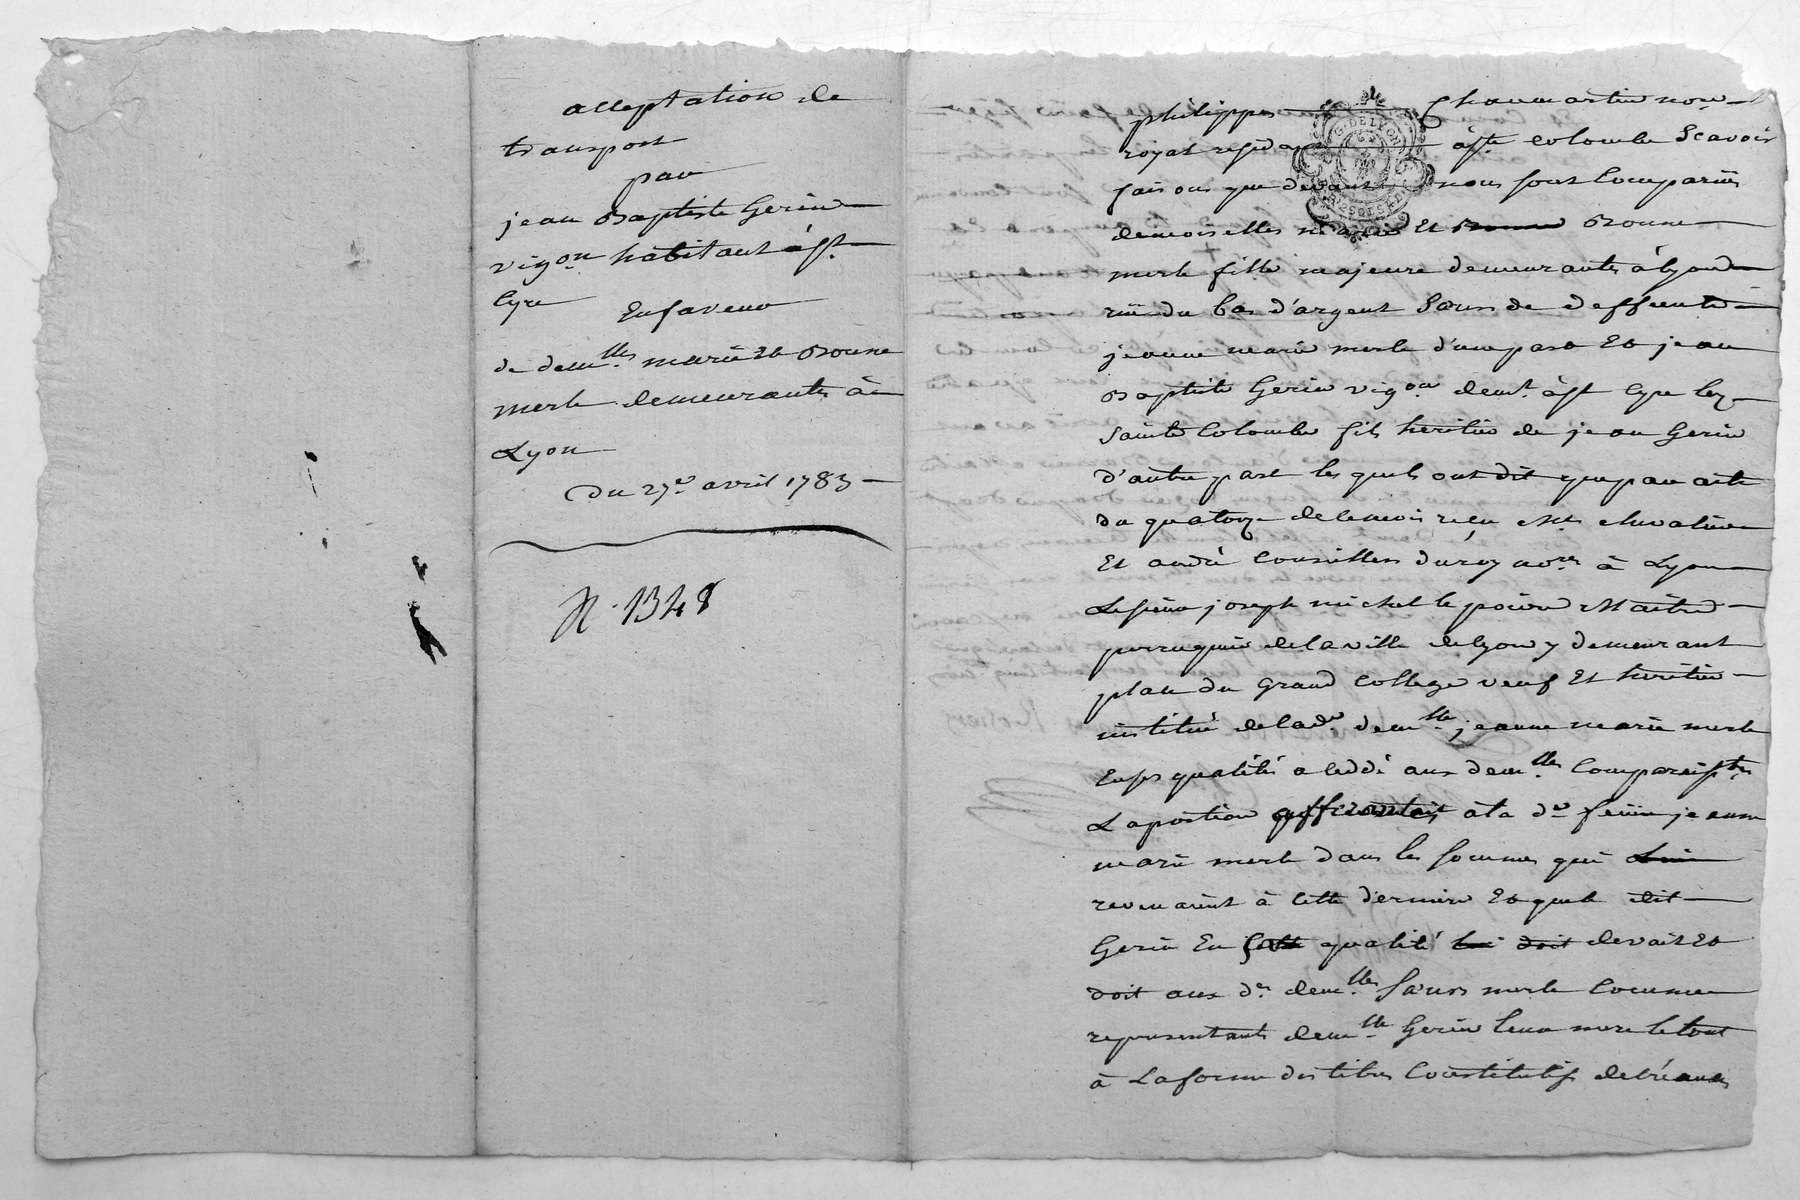 acceptation de
transport
par
jean Baptiste Gerin
vigon habitant à st
Cyre
En faveur
de demlles marie Et Bonne
merle demeurantes à
Lyon
du 27e avril 1783
N. 1348
philippes Chaumartin nore
royal residant à ste colombe Scavoir
faisons que devant nous sont Comparües
demoiselles marie Et Bonne Bonne
merle fille majeure demeurantes à lyon
rüe du bas d'argent Sœurs de deffuente
jeanne marie merle d'une part Et jean
Baptiste Gerin vigon demt. à st Cyre lez
Sainte Colombe fils heritier de jean Gerin
d'autre part les quels ont dit que par acte
du quatorze de ce mois reçu Me
Et andré Conseillers du roy nores à Lyon
Le sieur joseph michel le poivre Maitre
perruquier de la ville de lyon y demeurant
place du Grand College veuf Et heritier
institué de lade. demlle jeanne marie merle
En ses qualités a ceddé aux demlles Comparsptes
La portion afferante à la de feüe jeanne
marie merle dans les sommes qui
revenaient à cette derniere Et que le dit
Gerin En qualité lui doit devait Et
doit aux des demlles Sœurs merle Comme
representantes demlle Gerin leur mere le tout
à La forme des titres Constitutifs de créances